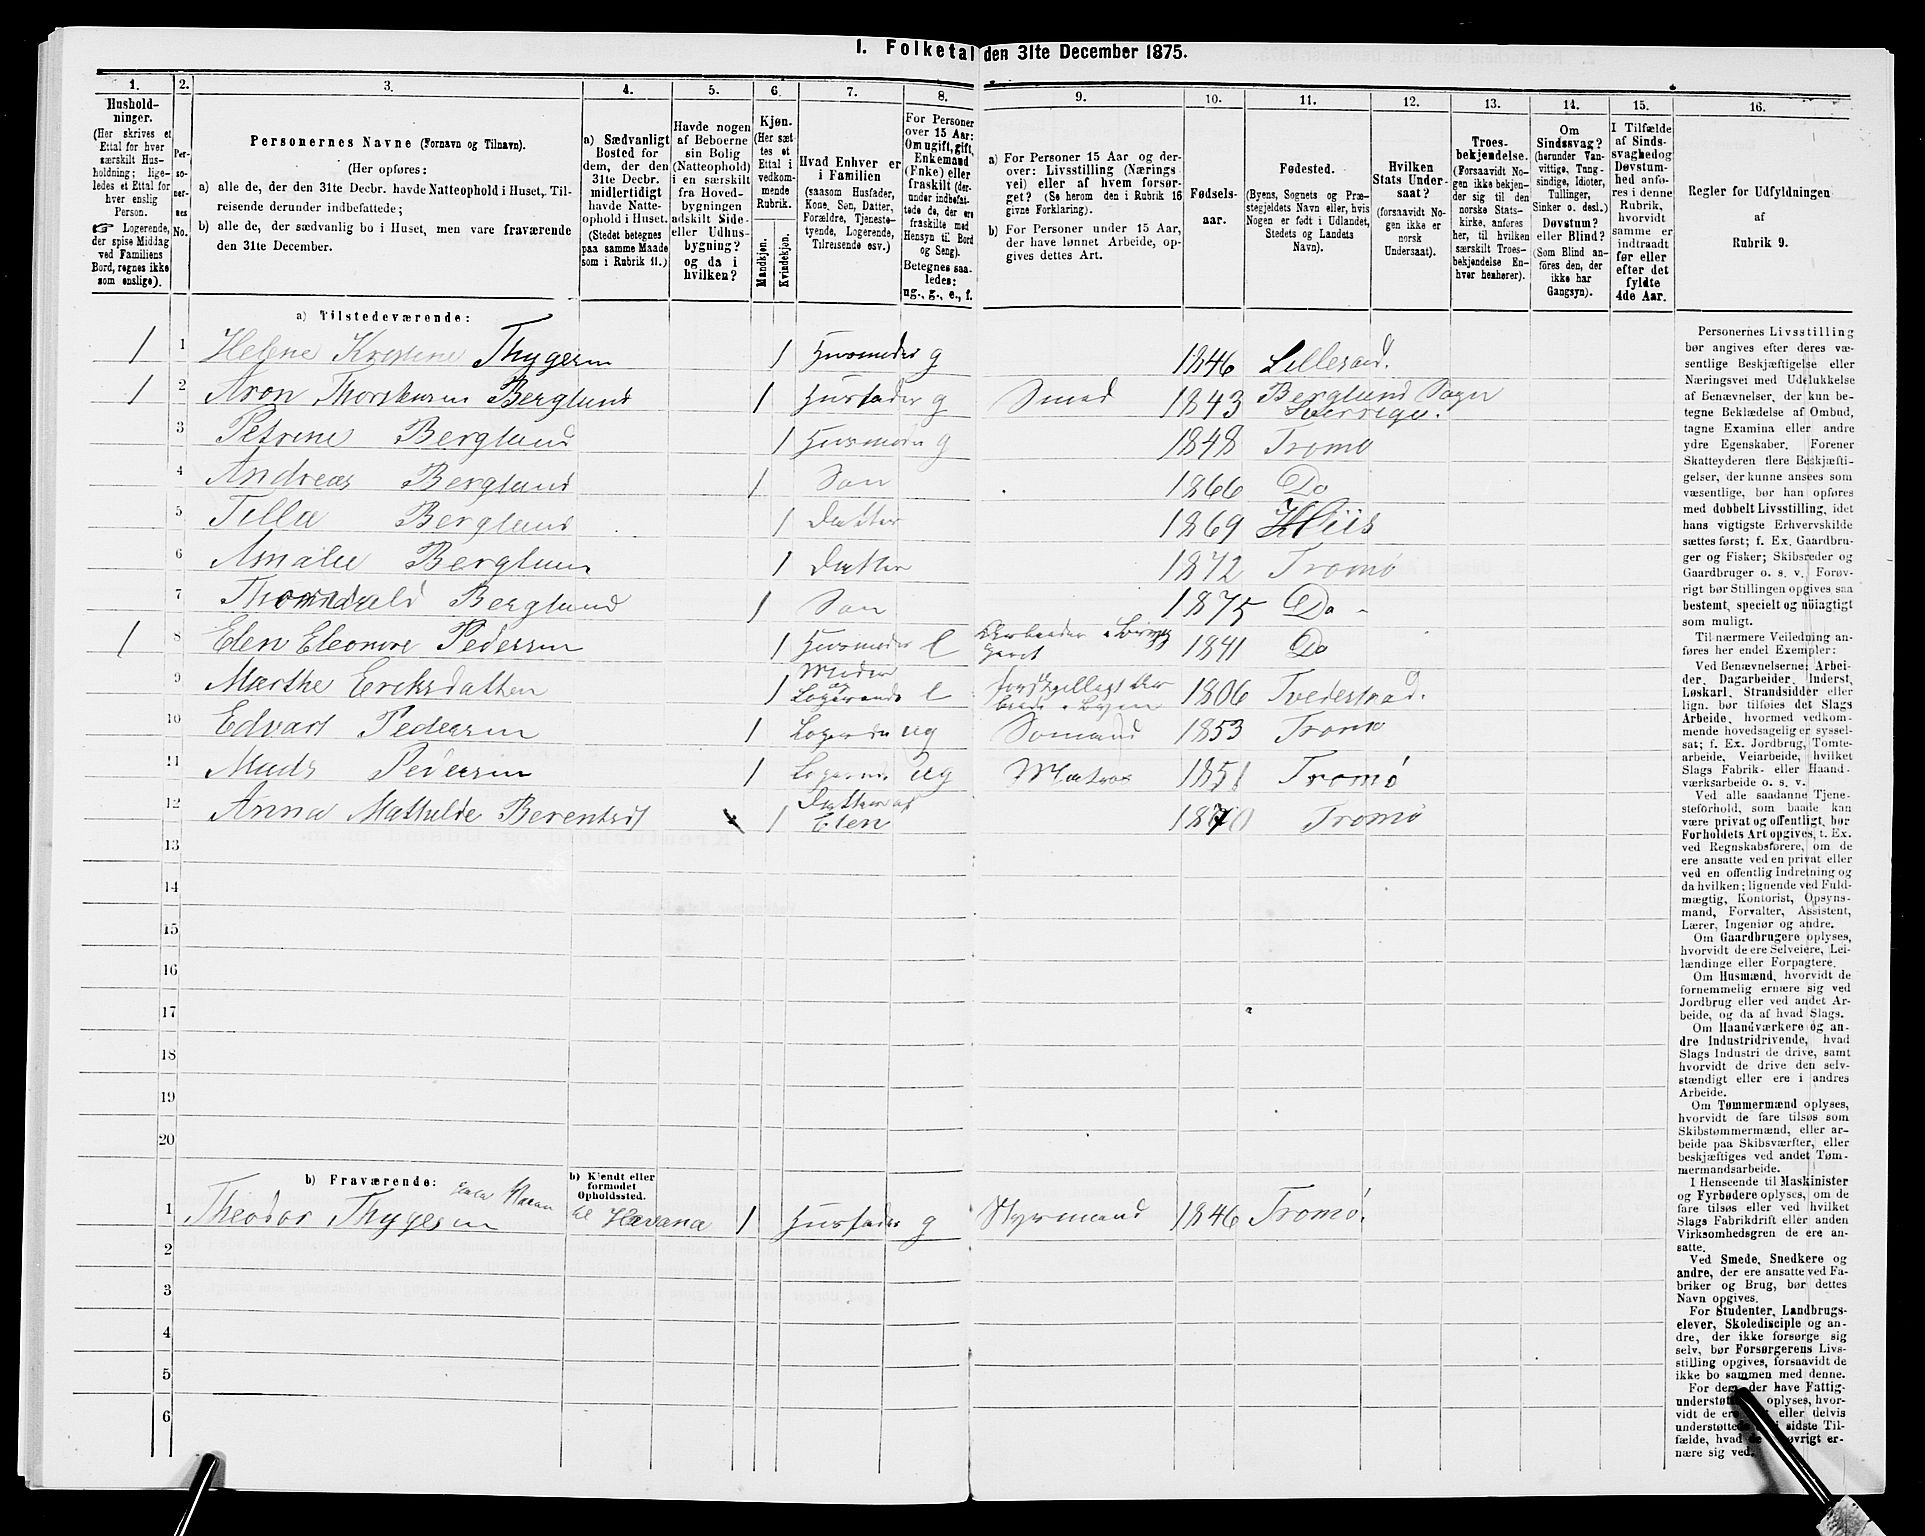 I. Folketal den 31te December 1875.
1. 2. 3. 4. 5. 6. 7. 8. 9. 10. 11. 12. 13. 14. 15. 16.
Hushold-
ninger.
(Her skrives et
Ettal for hver
særskilt Hus-
holdning; lige-
ledes et Ettal for
hver enslig
Person.
☞ Logerende,
der spise Middag
ved Familiens
Bord, regnes ikke
som enslige).
Per-
so-
ner-
nes
No.
Personernes Navne (Fornavn og Tilnavn).
(Her opføres:
a) alle de, der den 31te Decbr. havde Natteophold i Huset, Til-
reisende derunder indbefattede;
b) alle de, der sædvanlig bo i Huset, men vare fraværende
den 31te December.
a) Sædvanligt
Bosted for
dem, der den
31te Decbr.
midlertidigt
havde Natte-
ophold i Huset.
(Stedet betegnes
paa samme Maade
som i Rubrik 11.)
Havde nogen
af Beboerne
sin Bolig
(Natteophold)
i en særskilt
fra Hoved-
bygningen
adskilt Side-
eller Udhus-
bygning?
og da i
hvilken?
Kjøn.
(Her sæt-
tes et
Ettal i
vedkom-
mende
Rubrik.
Mandkjøn.
Kvindekjøn.
Hvad Enhver er
i Familien
(saasom Husfader,
Kone, Søn, Datter,
Forældre, Tjeneste-
tyende, Logerende,
Tilreisende osv.)
For Personer
over 15 Aar:
Om ugift, gift,
Enkemand
(Enke) eller
fraskilt (der-
under indbefat-
tede de, der ere
fraskilte med
Hensyn til Bord
og Seng).
Betegnes saa-
ledes:
ug., g., e., f.
a) For Personer 15 Aar og der-
over: Livsstilling (Nærings
vei) eller af hvem forsør-
get? (Se herom den i Rubrik 16
givne Forklaring).
b) For Personer under 15 Aar,
der have lønnet Arbeide, op-
gives dettes Art.
Fødsels-
aar.
Fødested.
(Byens, Sognets og Præ-
stegjeldets Navn eller, hvis
Nogen er født i Udlandet,
Stedets og Landets
Navn).
Hvilken
Stats Under-
saat?
(forsaavidt No-
gen ikke er
norsk
Undersaat).
Troes-
bekjendelse.
(Forsaavidt No-
gen ikke bekjen-
der sig til den
norske Stats-
kirke, anføres
her, til hvilken
særskilt Troes-
bekjendelse En-
hver henhører).
Om
Sindssvag?
(herunder Van-
vittige, Tung-
sindige, Idioter,
Tullinger,
Sinker o. desl.)
Døvstum?
eller Blind?
(Som Blind an-
føres den, der
ikke har
Gangsyn).
I Tilfælde
af Sinds-
svaghed og
Døvstum-
hed anfø-
res i denne
Rubrik,
hvorvidt
samme er
indtraadt
før eller
efter det
fyldte
4de Aar.
Regler for Udfyldningen
af
Rubrik 9.
a) Tilstedeværende:
1 1 Helene Kristine Thygesen 1 Husmoder g 1846 Lillesand.
1 2 Aron Thorsteren Berglund 1 Husfader g Smed 1843 Berglund Sogn
Sverrige.
3 Petrine Berglund 1 Husmoder g 1848 Tromø
4 Andreas Berglund 1 Søn 1866 Do
5 Tilla Berglund 1 Datter 1869 Hiis
6 Amalie Berglund 1 Datter 1872 Tromø
7 Thorvald Berglund 1 Søn 1875 Do
1 8 Elen Eleonore Pedersen 1 Husmoder E 1841 Do
9 Marthe Eriksdatter 1 Moder
og
Logerende E 1806 Tvedestrand.
10 Edvart Pedersen 1 Logerende ug Sømand 1853 Tromø
11 Mads Pedersen 1 Logerende ug Matros 1851 Tromø
12 Anna Mathilde Berentsdt 1 Datter af
Elen 1870 Tromø
13
14
15
16
17
18
19
20
b) Fraværende:
b) Kjendt eller
formodet
Opholdssted.
1 Theodor Thygesen til Havana 1 Husfader g Styrmand 1846 Tromø.
2
3
4
5
6
Personernes Livsstilling
bør angives efter deres væ-
sentlige Beskjæftigelse eller
Næringsvei med Udelukkelse
af Benævnelser, der kun be-
tegne Beklædelse af Ombud,
tagne Examina eller andre
ydre Egenskaber. Forener
Skatteyderen flere Beskjæfti-
gelser, der kunne ansees som
væsentlige, bør han opføres
med dobbelt Livsstilling, idet
hans vigtigste Erhvervskilde
sættes først; f. Ex. Gaardbru-
ger og Fisker; Skibsreder og
Gaardbruger o. s. v. Forøv-
rigt bør Stillingen opgives saa
bestemt, specielt og nøiagtigt
som muligt.
Til nærmere Veiledning an-
føres her endel Exempler:
Ved Benævnelserne: Arbei-
der, Dagarbeider, Inderst,
Løskarl, Strandsidder eller
lign. bør tilføies det Slags
Arbeide, hvormed vedkom-
mende hovedsagelig er syssel-
sat; f. Ex. Jordbrug, Tomte-
arbeide, Veiarbeide, hvilket
Slags Fabrik- eller Haand-
værksarbeide o. s. v.
Ved alle saadanne Tjene-
steforhold, som baade kan
være privat og offentligt, bør
Forholdets Art opgives, t. Ex.
ved Regnskabsførere, om de
ere ansatte ved en privat eller
ved en offentlig Indretning og
da hvilken; lignende ved Fuld-
mægtig, Kontorist, Opsyns-
mand, Forvalter, Assistent,
Lærer, Ingeniør og andre.
Om Gaardbrugere oplyses,
hvorvidt de ere Selveiere, Lei-
lændinge eller Forpagtere.
Om Husmænd, hvorvidt de
fornemmelig ernære sig ved
Jordbrug eller ved andet Ar-
beide, og da af hvad Slags.
Om Haandværkere og an-
dre Industridrivende, hvad
Slags Industri de drive, samt
hvorvidt de drive den selv-
stændigt eller ere i andres
Arbeide.
Om Tømmermænd oplyses,
hvorvidt de fare tilsøs som
Skibstømmermænd, eller ar-
beide paa Skibsværfter, eller
beskjæftiges ved andet Tøm-
mermandsarbeide.
I Henseende til Maskinister
og Fyrbødere oplyses, om de
fare tilsøs eller ved hvilket
Slags Fabrikdrift eller anden
Virksomhedsgren de ere an-
satte.
Ved Smede, Snedkere og
andre, der ere ansatte ved Fa-
briker og Brug, bør dettes
Navn opgives.
For Studenter, Landbrugs-
elever, Skoledisciple og an-
dre, der ikke forsørge sig
selv, bør Forsørgerens Livs-
stilling opgives, forsaavidt de
ikke bo sammen med denne.
For dem, der have Fattig-
oplyses, hvor-
vidt de eller delvis
i sidste Til-
fælde, hvad øvrigt er-
nære sig ved.